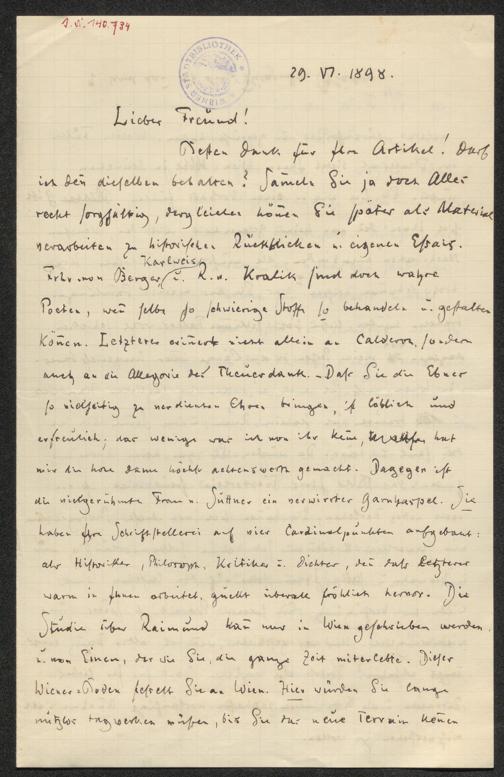 J. N. 140.734
WIENER STADTBIBLIOTHEK
29. VI. 1898.
Lieber Freund!
Besten Dank für Ihre Artikel! Darf
ich den dieselben behalten? Sam̄eln Sie ja doch Alles
recht sorgfältig, dergleichen kön̄en Sie später als Material
verarbeiten zu historischen Rückblicken u. eigenen Essais.
Karlweis
Frhr. von Berger, u. R. v. Kralik sind doch wahre
Poeten, wen̄ selbe so schwierige Stoffe so behandeln u. gestalten
kön̄en. Letzterer erin̄ert nicht allein an Calderon, sondern
auch an die Allegorie des Theuerdank. – Daß Sie die Ebner
so vielseitig zu verdienten Ehren bringen, ist löblich und
erfreulich; das wenige was ich von ihr ken̄e, hat
mir die hohe Dame höchst achtenswerth gemacht. Dagegen ist
die vielgerühmte Frau v. Suttner ein verwirrter Garnhaspel. Sie
haben Ihre Schriftstellerei auf vier Cardinalpunkten aufgebaut:
als Historiker, Philosoph, Kritiker u. Dichter, den̄ daß Letzterer
warm in Ihnen arbeitet, guckt überall fröhlich hervor. Die
Studie über Raimund kan̄ nur in Wien geschrieben werden
u. von Einem, der wie Sie, die ganze Zeit miterlebte. Dieser
Wiener-Boden fesselt Sie an Wien. Hier würden Sie lange
nutzlos tagwerken müssen, bis Sie das neue Terrain ken̄en